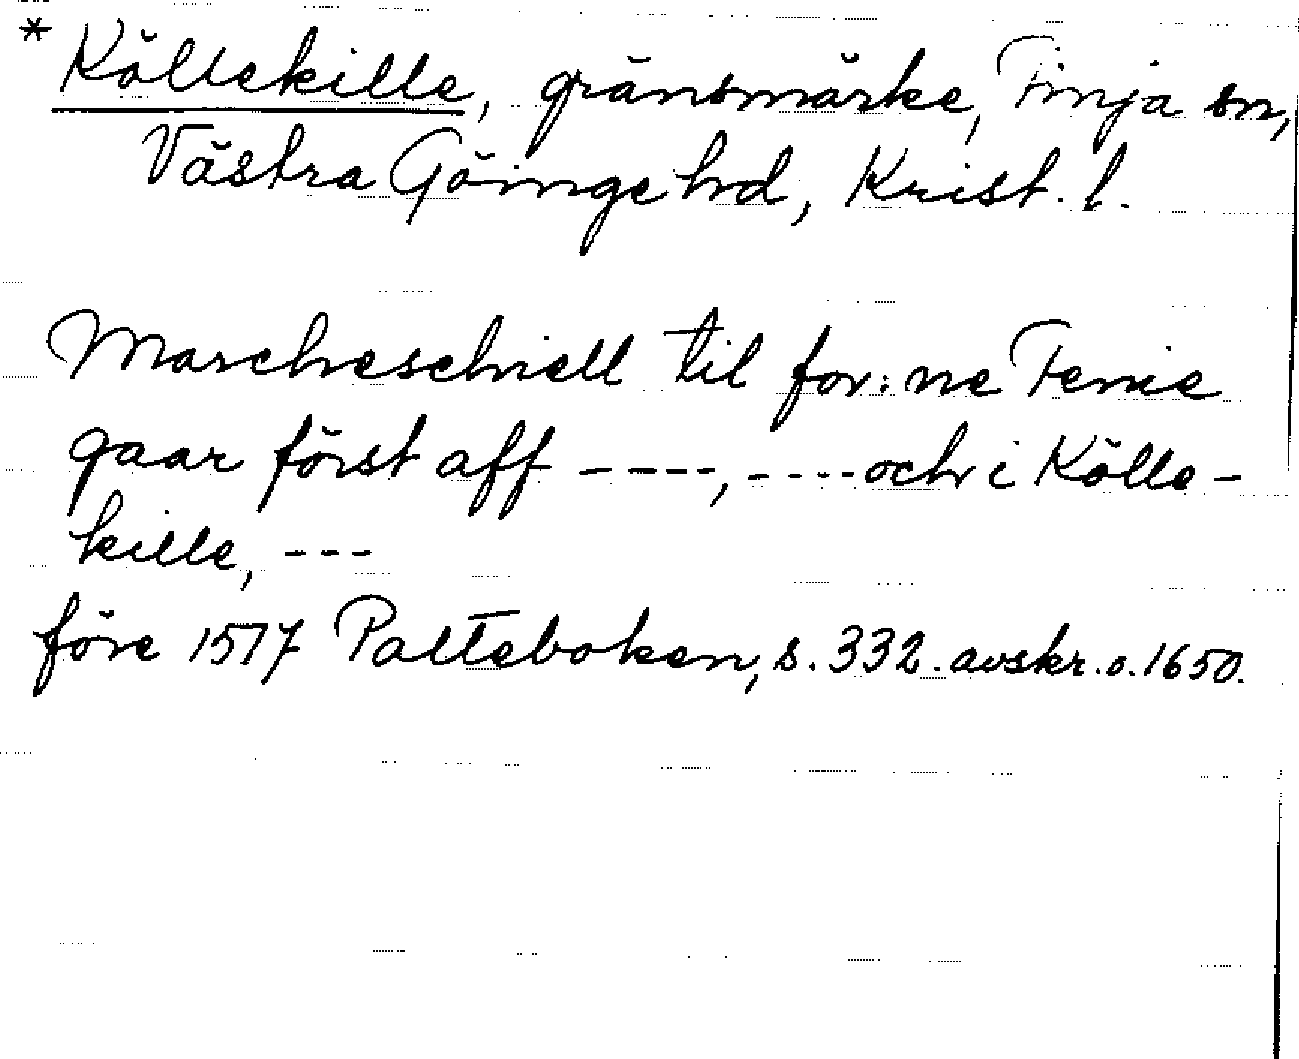 * Köllekille, gränsmärke, Finja sn,
Västra Göinge hrd, Krist. l.
Marcheschiell til for:ne Fenie
gaar först aff ----, ---- och i Kölle-
kille, ---
före 1577 Palteboken, s. 332. avskr. o. 1650.